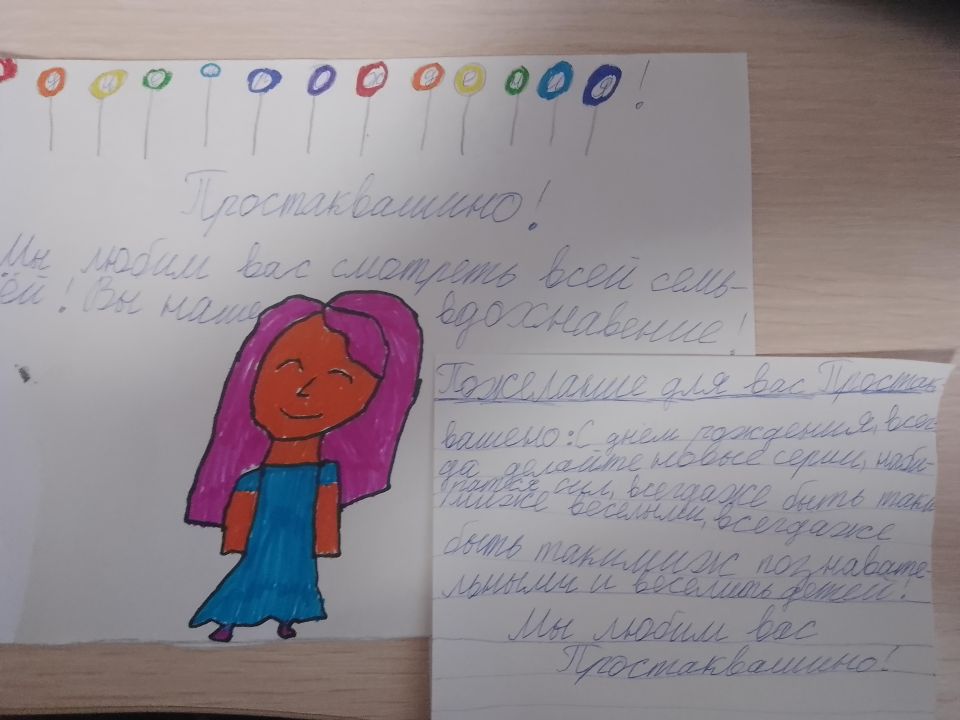 днём рождения!
Простаквашино!
Мы любим вас смотреть всей семь-
ёй! Вы наше вдохнавение!
Пожелание для вас Простак
вашено: С днём рождения, всег-
да делайте новые серии, наби-
райтеся сил, всегдаже быть таки
миже весёлыми, всегдаже
быть такимиж познавате-
льными и веселить детей!
Мы любим вас
Простаквашино!